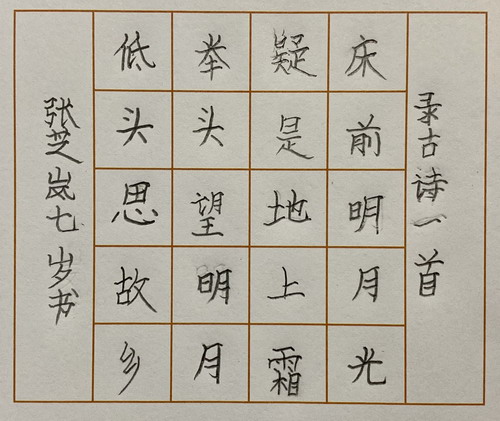 录古诗一首
床前明月光
疑是地上霜
举头望明月
低头思故乡
张芝岚七岁书